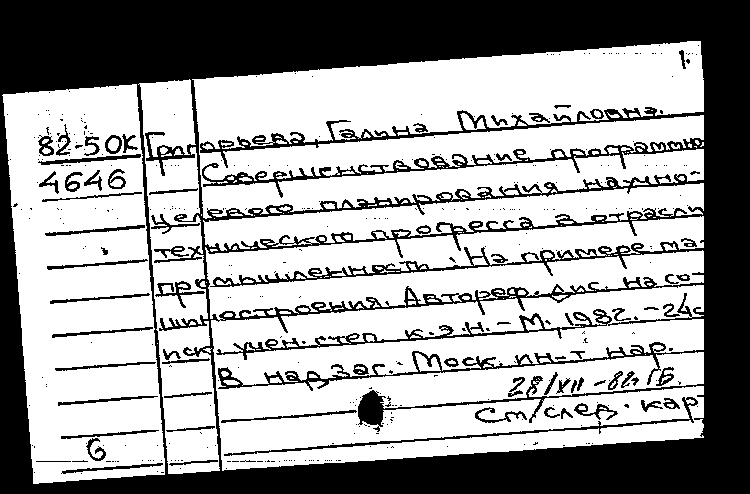 1.
82-5 ОК Григорьева, Галина Михайловна.
4646 Совершенствование программно
целевого планирования научно-
технического прогресса в отрасли
промышленность: На примере ма-
шиностроения. Автореф. дис. на со-
иск. учен. степ. к.э.н. - М., 1982. - 24с
В надзаг.: Моск. ин-т нар.
28/XII-82. ГБ.
См/след. кар
6